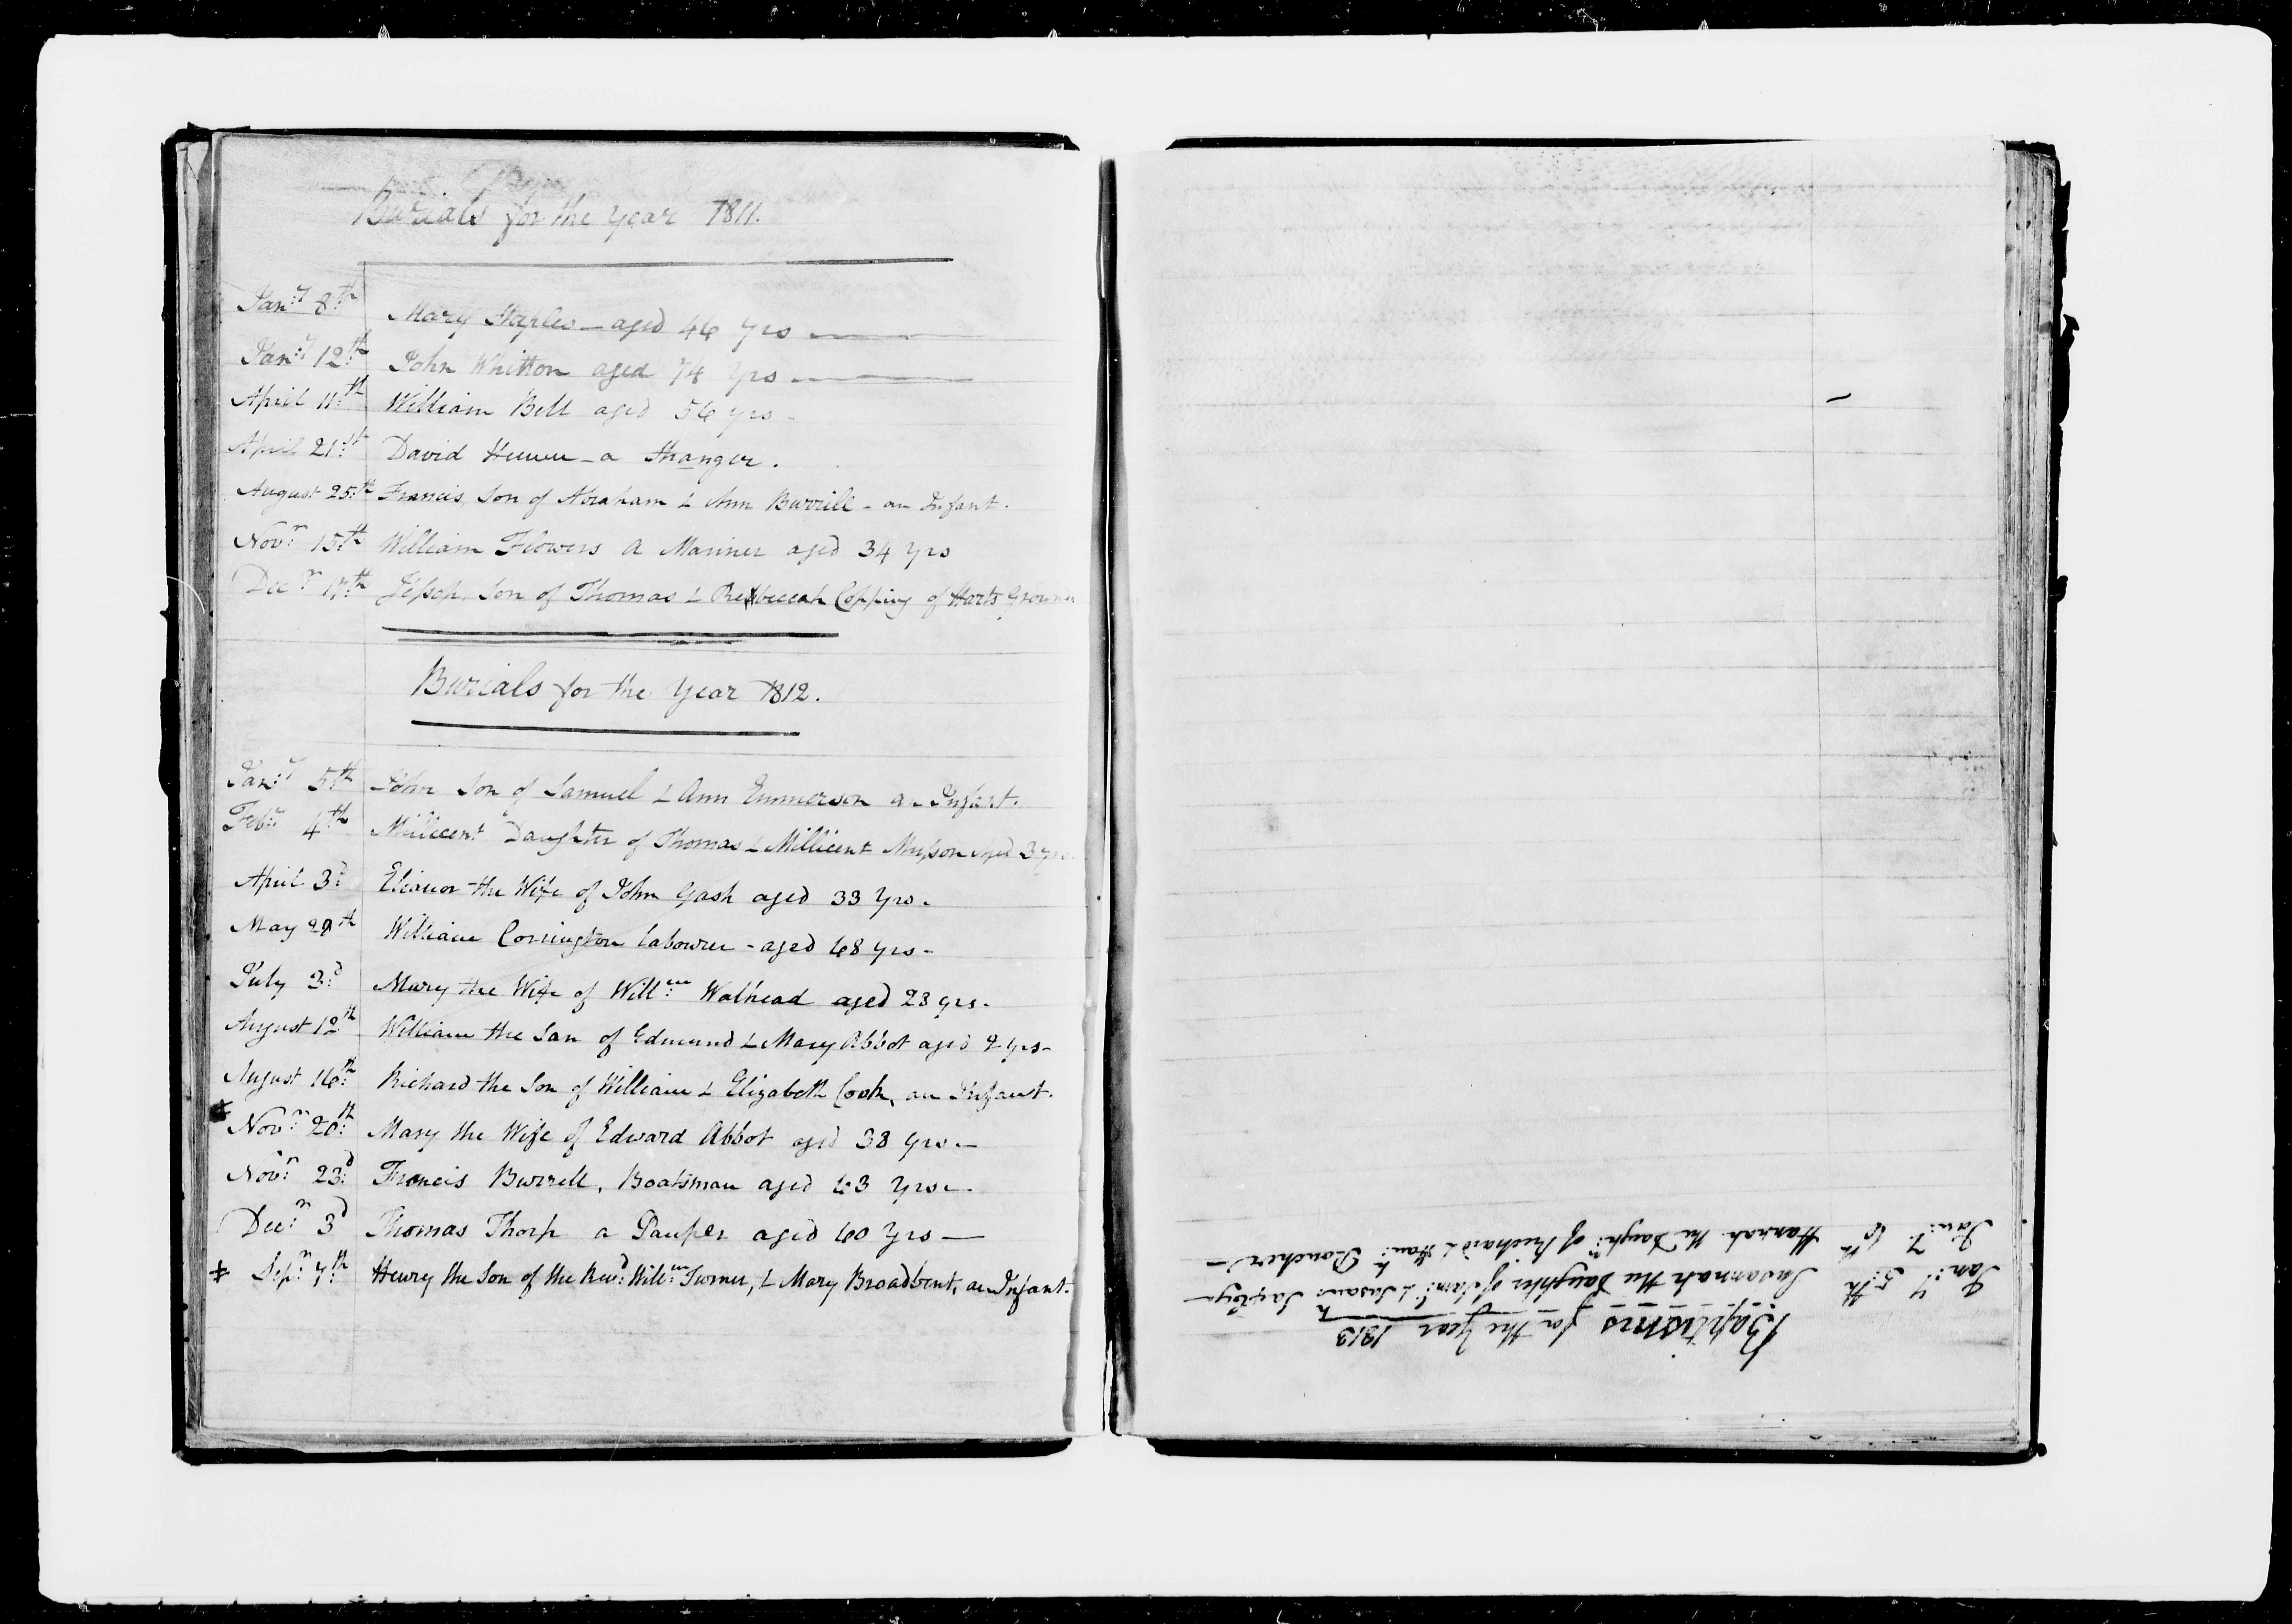 Burials for the year 1811.
Jan:y 8th Mary Staples - aged 46 yrs
Jan:y 12th John Whitton aged 74 yrs
April 11th William Bell aged 56 yrs -
April 21st David - a Stranger.
August 25th Francis, Son of Abraham & Ann Burrill - an Infant.
Novr 15th William Flowers a Mariner aged 34 yrs
Decr 17th Son of Thomas & Copping of Harts Grounds
Burials for the Year 1812.
Jan:y 5th John Son of Samuel & Ann Emmerson an Infant.
Feb:y 4th Millicent Daughter of Thomas & Millicent Musson aged 3 yrs
April 3d Eleanor the Wife of John Gash aged 33 Yrs.
May 29th William Corrington Labourer - aged 68 yrs -
July 3d Mary the Wife of Willm Walhead aged 28 yrs.
August 12th William the Son of Edmund & Mary Abbot aged 2 yrs -
August 16th Richard the Son of William & Elizabeth Cook, an Infant.
Novr 20th Mary the Wife of Edward Abbot aged 38 yrs. -
Novr 23d Francis Burrell, Boatsman aged 63 Yrs. -
Decr 3d Thomas Thorp a Pauper aged 60 Yrs -
Sepr 7th Henry the Son of the Revd Willm Turner, & Mary Broadbent, an Infant.
Baptisms for the Year 1813
Jan:y 5th Susannah the Daughter of Saml & Susanh
Jan:y 6th Hannah the Daughr of Richard & Hanh Boucher -